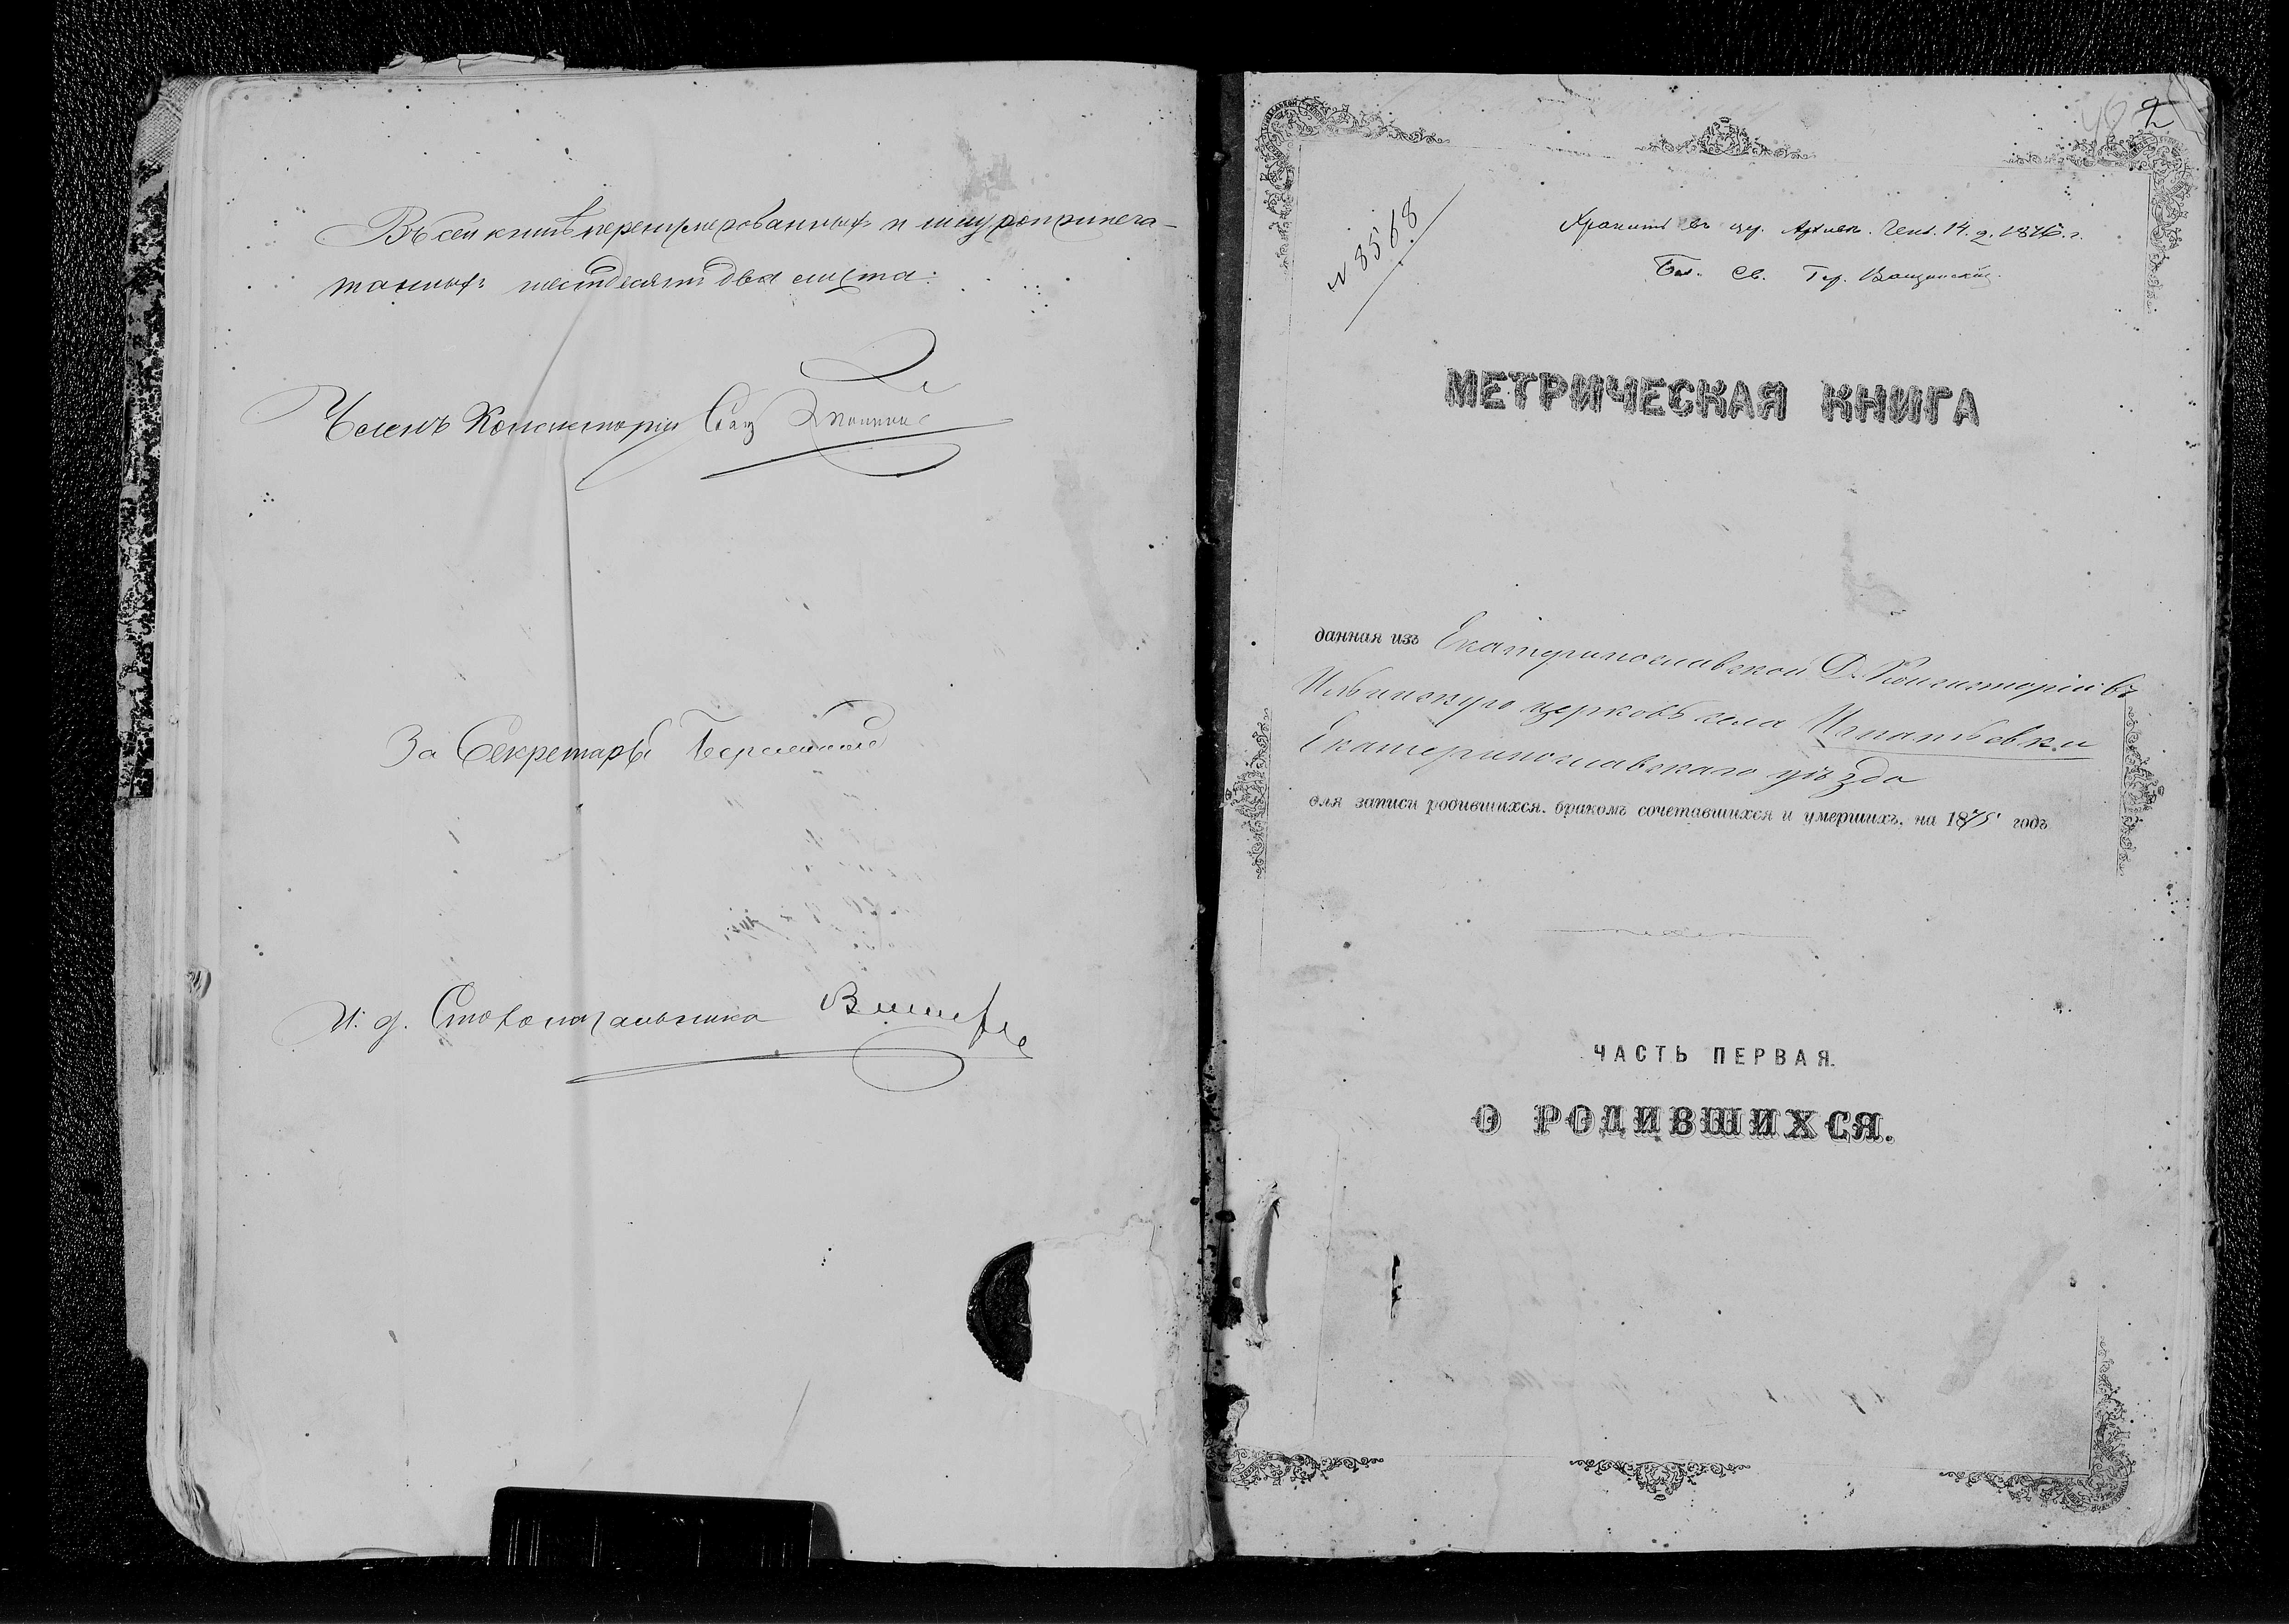 Въ сей книгѣ перенумерованныхъ и шнуроприпеча-
танныхъ шестдесятъ два листа.
Членъ Консисторіи Свящ
За Секретаря
И. д. Столоначальника
2
№ 8568
Хранить въ Архивѣ. Генв. 14 д. 1876 г.
Св.
МЕТРИЧЕСКАЯ КНИГА
данная изъ Екатеринославской Д. Консисторіи въ
Ильинскую церковь села Игнатьевки
Екатеринославскаго уѣзда
для записи родившихся, бракомъ сочетавшихся и умершихъ, на 1875 годъ
ЧАСТЬ ПЕРВАЯ.
О РОДИВШИХСЯ.